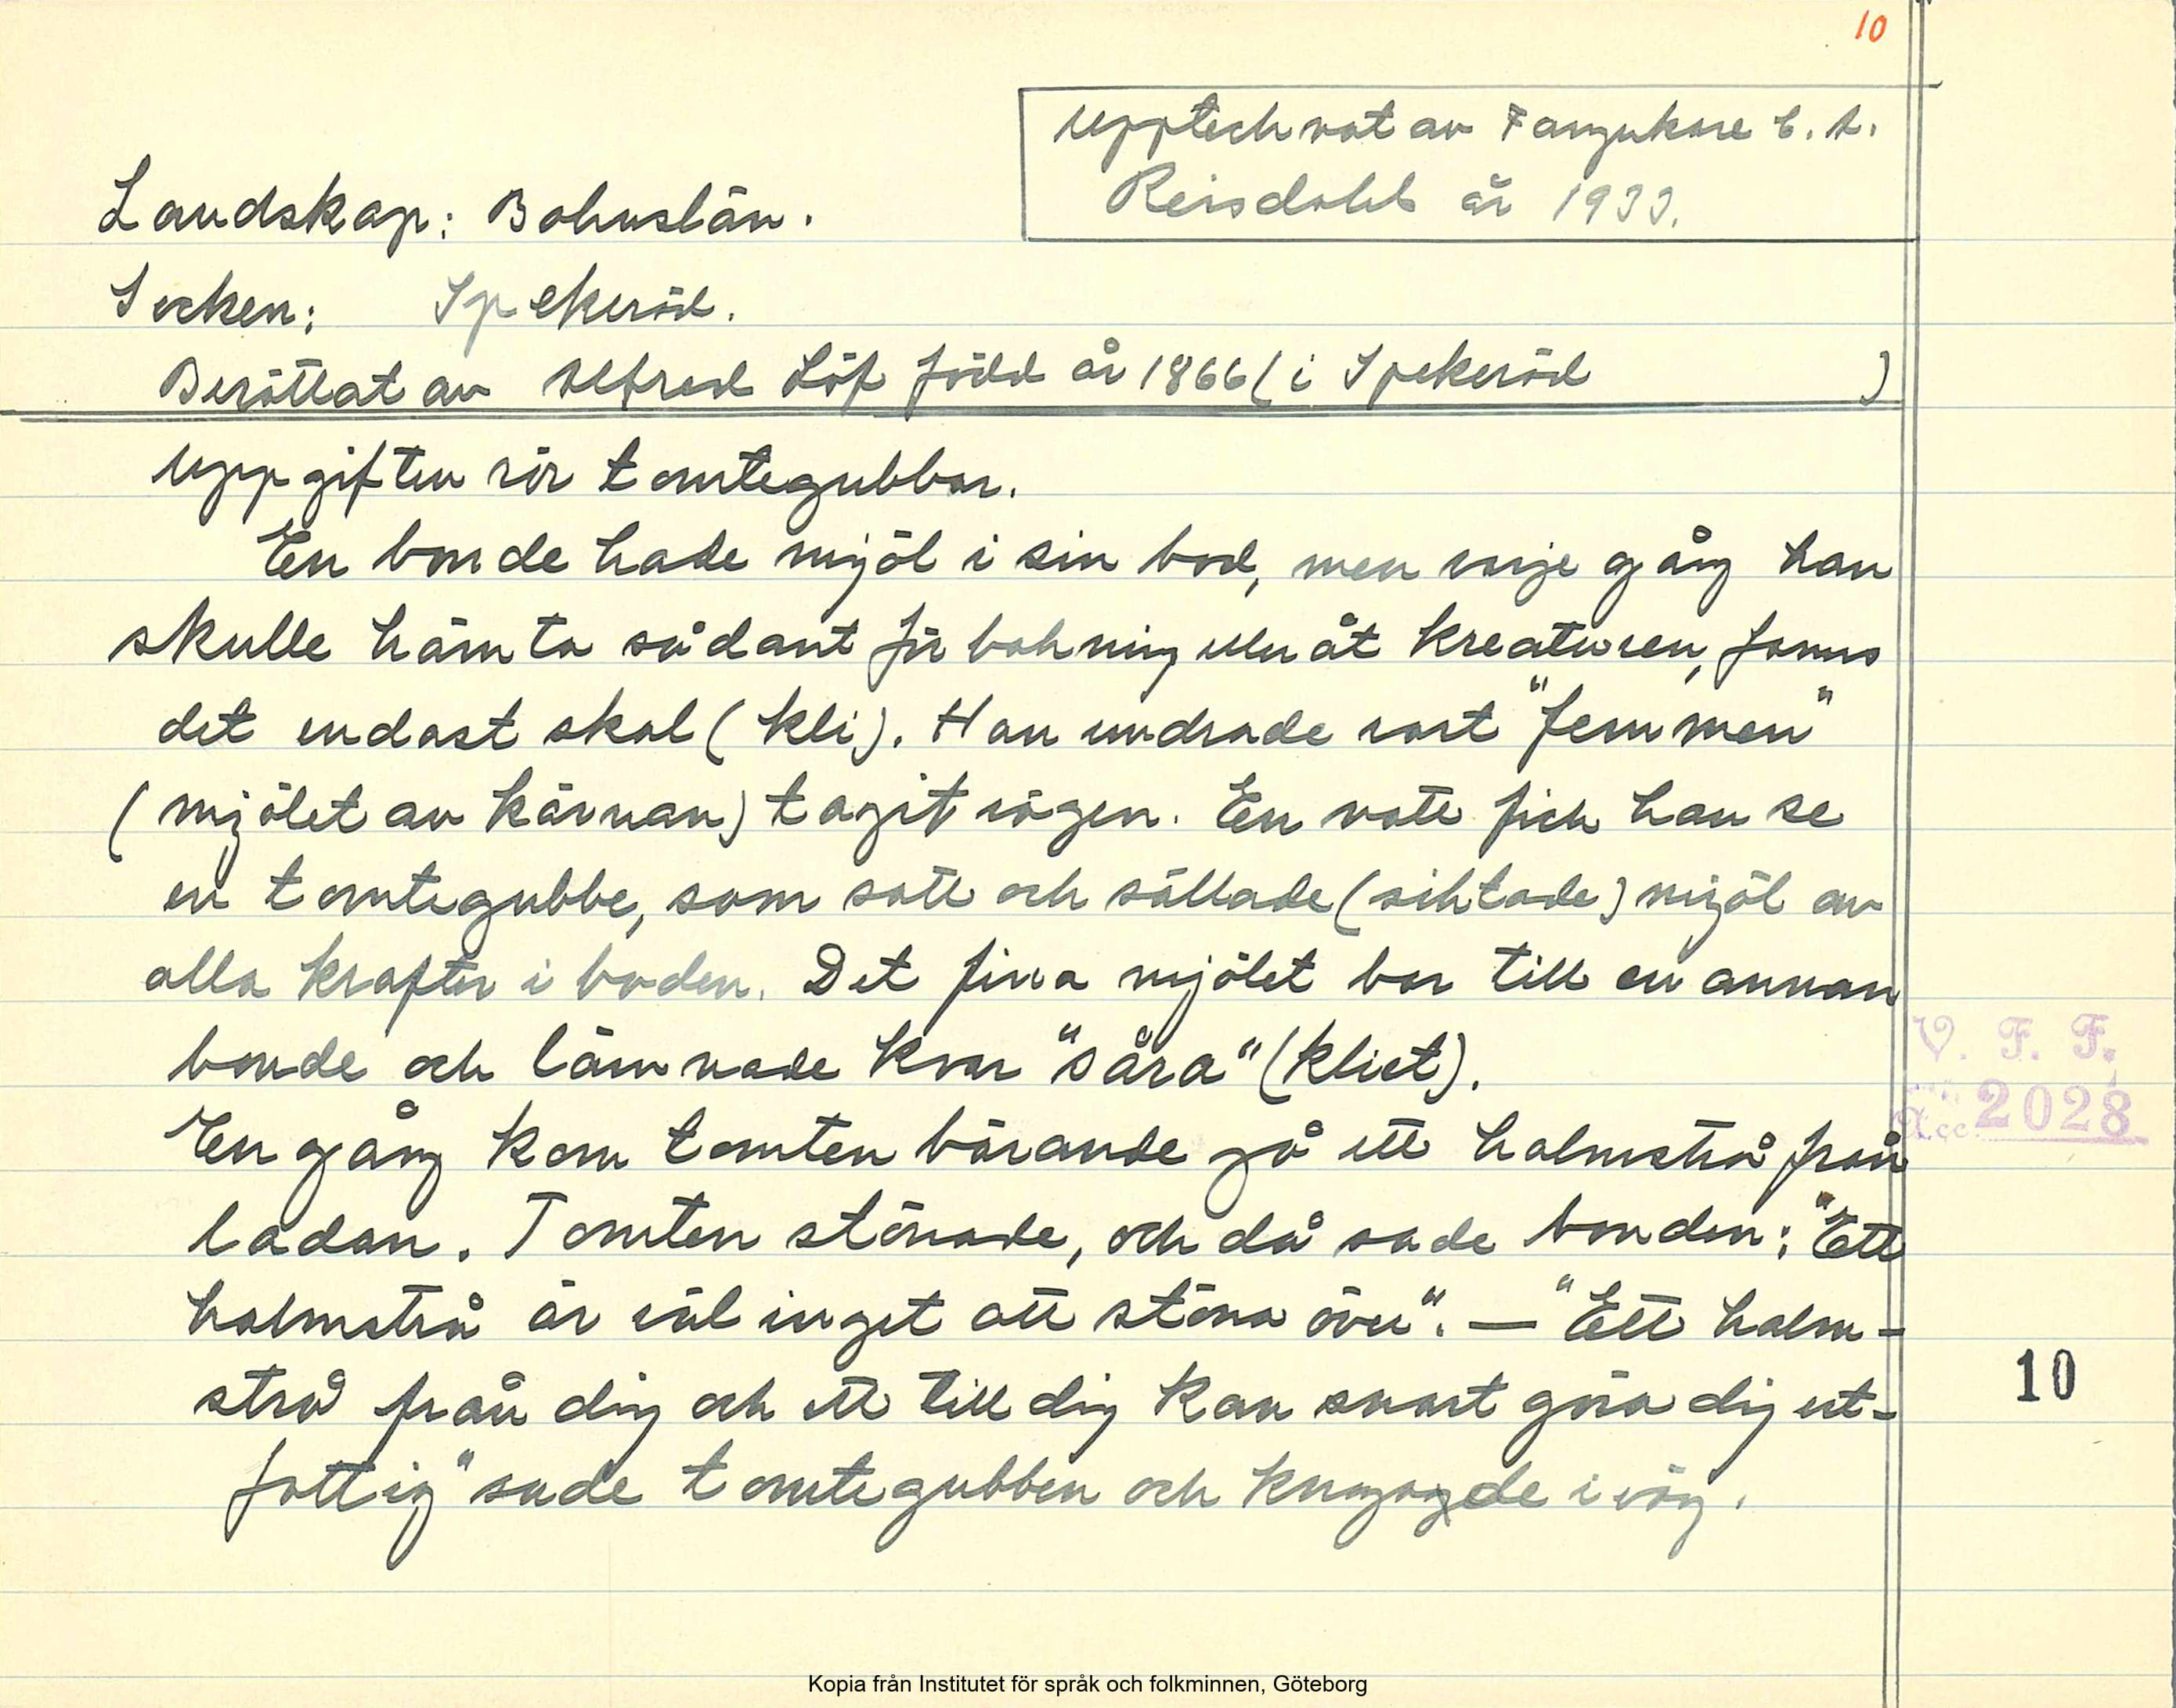 10
Upptecknat av Fanjunkare C. A.
Reisdahl år 1933.
Landskap: Bohuslän.
Socken: Spekeröd.
Berättat av Alfred Löf född år 1866 (i Spekeröd )
Uppgiften rör tomtegubbar.
En bonde hade mjöl i sin bod, men varje gång han
skulle hämta sådant för bakning eller åt kreaturen, fanns
det endast skal (kli). Han undrade vart "femmen"
(mjölet av kärnan) tagit vägen. En natt fick han se
en tomtegubbe, som satt och sållade (siktade) mjöl av
alla krafter i boden. Det fina mjölet bar till en annan
bonde och lämnade kvar "såra" (kliet).
En gång kom tomten bärande på ett halmstrå från
ladan. Tomten stönade, och då sade bonden: "Ett
halmstrå är väl inget att stöna över". — "Ett halm-
strå från dig och ett till dig kan snart göra dig ut-
fattig" sade tomtegubben och knogade iväg.
V. F. F.
Acc. 2028
10
Kopia från Institutet för språk och folkminnen, Göteborg